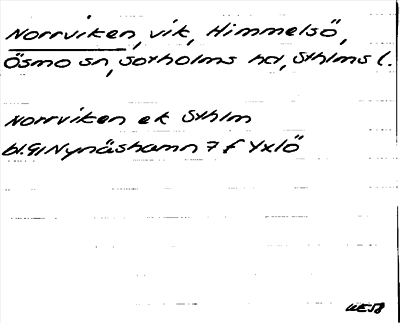 Norrviken, vik, Himmelsö,
Ösmo sn, Sotholms hd, Sthlms l.
Norrviken ek Sthlm
bl. 91 Nynäshamn 7 f Yxlö